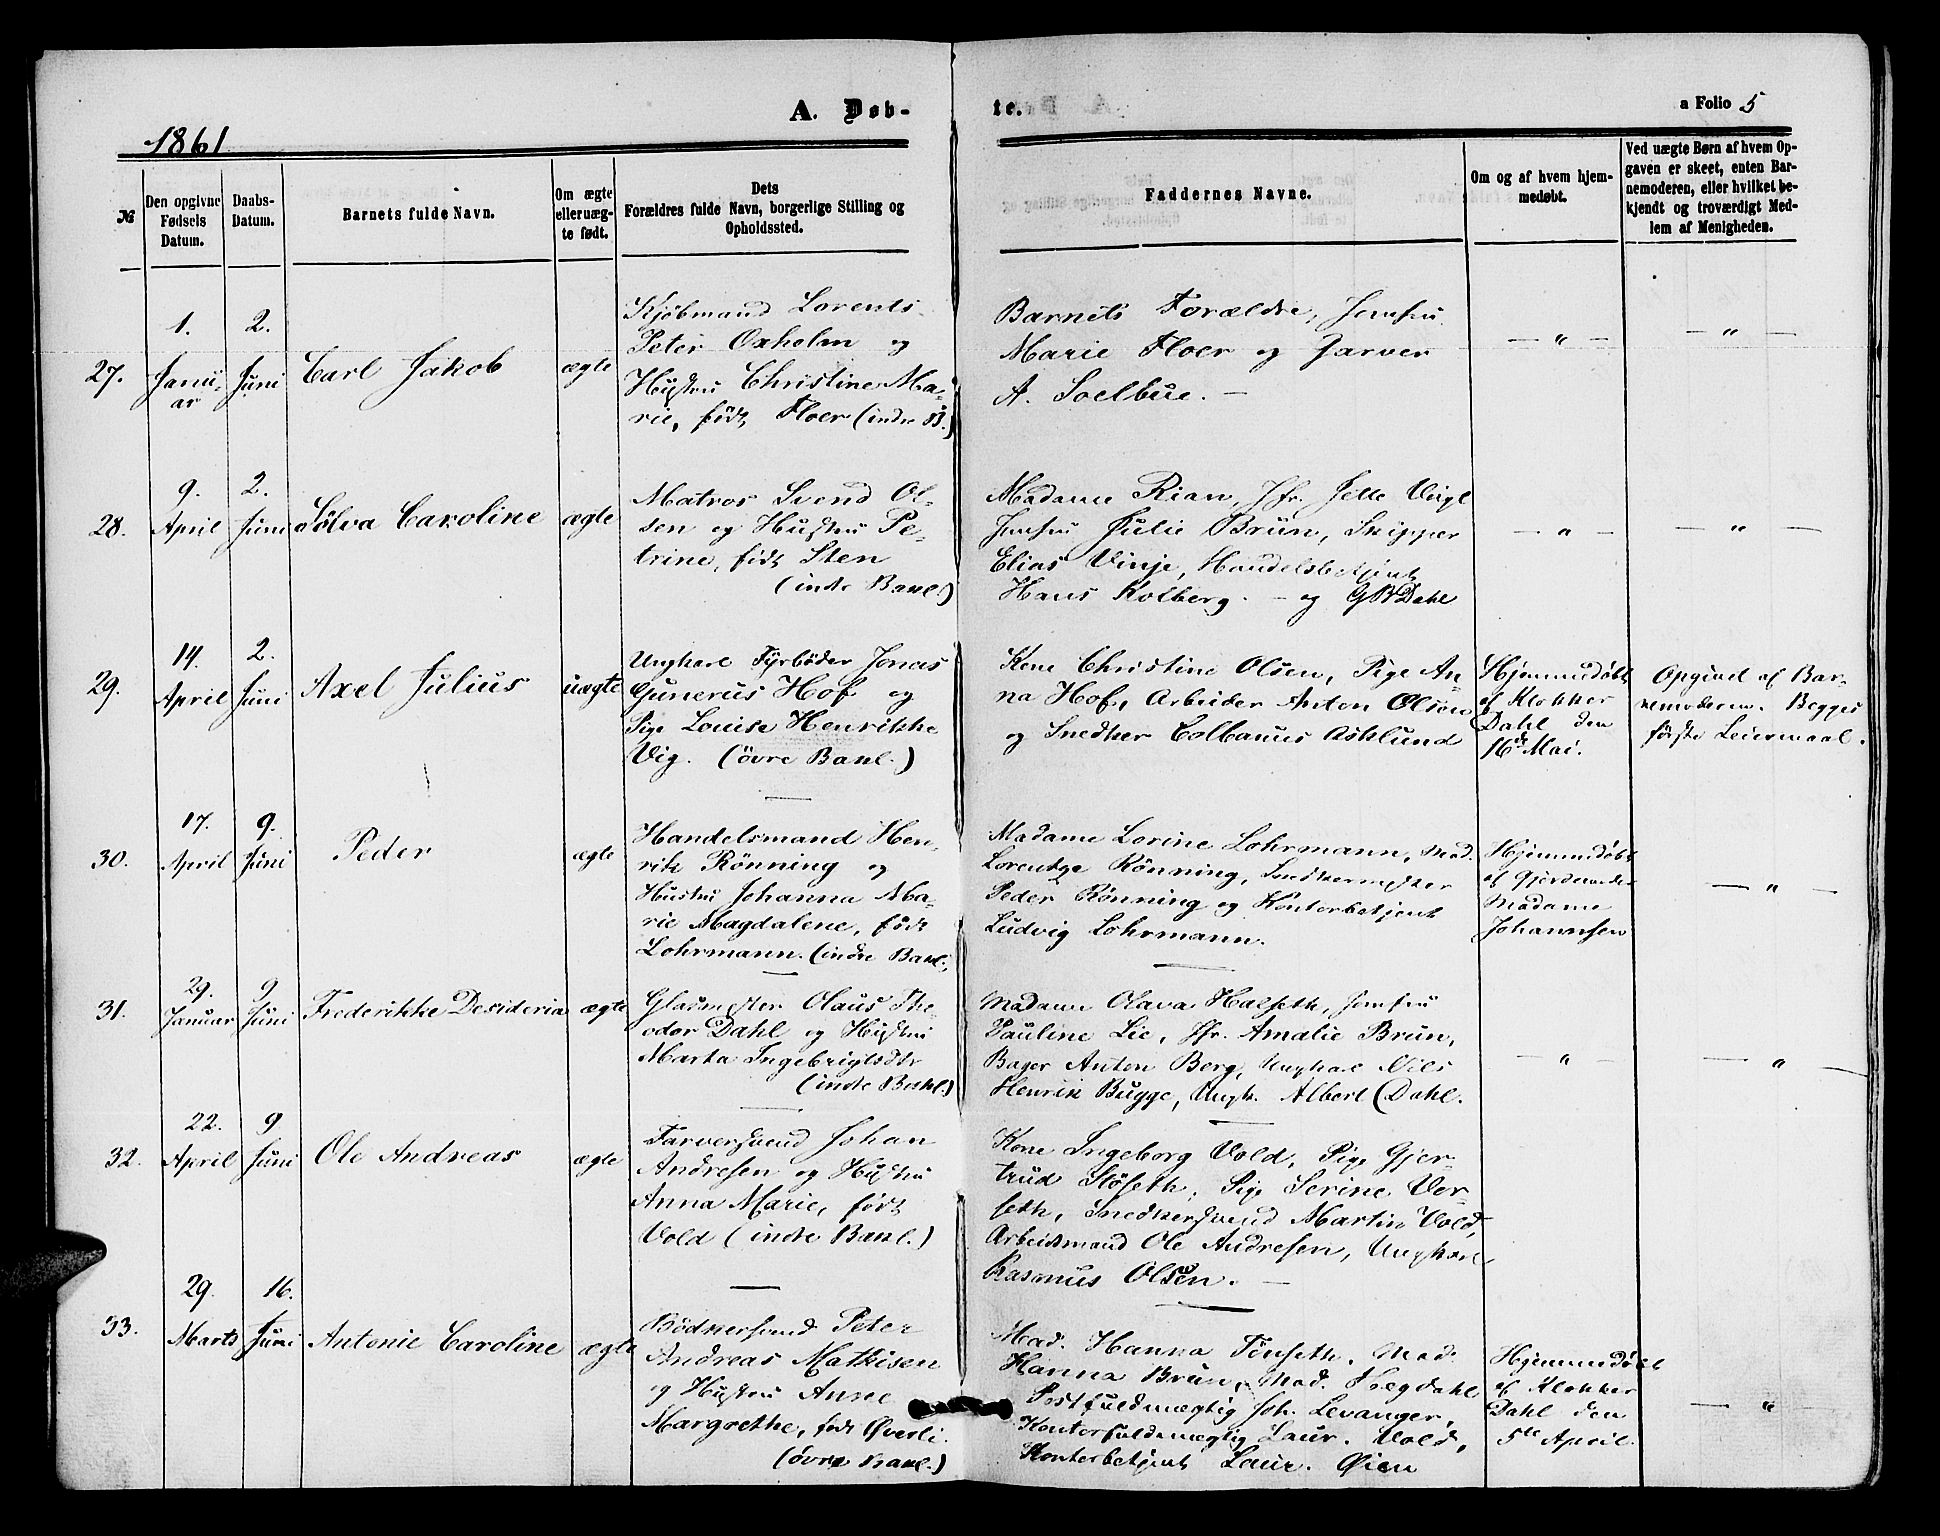 A. Døb-
te.
a Folio 5
1861
№
Den opgivne
Fødsels
Datum.
Daabs-
Datum.
Barnets fulde Navn.
Om ægte
eller uæg-
te født.
Dets
Forældres fulde Navn, borgerlige Stilling og
Opholdssted.
Faddernes Navne.
Om og af hvem hjem-
medøbt.
Ved uægte Børn af hvem Op-
gaven er skeet, enten Bar-
nemoderen, eller hvilket be-
kjendt og troværdigt Med-
lem af Menigheden.
27.
1.
Janu-
ar
2.
Juni
Carl Jakob
ægte
Kjöbmand Lorents
Peter Oxholm og
Hustru Christine Ma-
rie, födt Floer (indre B.)
Barnets Forældre, Jomfru
Marie Floer og Farver
A. Soelbue. —
— " —
— " —
28.
9.
April
2.
Juni
Sölva Caroline
ægte
Matros Svend Ol-
sen og Hustru Pe-
trine, födt Sten
(indre Bakl.)
Madame Rian, Jfr. Jette
Jomfru Julie Brun, Skipper
Elias Vinje, Handelsbetjent
Hans Kolberg. — og Dahl
— " —
— " —
29.
14.
April
2.
Juni
Axel Julius
uægte
Ungkarl Fyrböder Jonas
Gunerus Hof og
Pige Louise Henrikke
Vig. (övre Bakl.)
Kone Christine Olsen, Pige An-
na Hof, Arbeider Anton Olsen
og Snedker Colbanus Asklund
Hjemmedöbt
af Klokker
Dahl den
16de Mai.
Opgivet af Bar-
nemoderen. Begges
förste Leiermaal.
30.
17.
April
9.
Juni
Peder
ægte
Handelsmand Hen-
rik Rönning og
Hustru Johanna Ma-
rie Magdalene, födt
Lohrmann. (indre Bakl.)
Madame Lorine Lohrmann, Mad.
Lorentze Rönning, Snedkermester
Peder Rönning og Kontorbetjent
Ludvig Lohrmann.
Hjemmedöbt
af Gjordemoder
Madame
Johannsen
— " —
31.
29.
Januar
9
Juni
Frederikke Desideria
ægte
Glasmester Olaus The-
odor Dahl og Hustru
Marta Ingebrigtsdtr
(indre Bakl.)
Madame Olava Halseth, Jomfru
Pauline Lie, Jfr. Amalie Brun,
Bager Anton Berg, Ungkarl Nils
Henrik Bugge, Ungk. Albert Dahl.
— " —
— " —
32.
22.
April
9
Juni
Ole Andreas
ægte
Farversvend Johan
Andresen og Hustru
Anna Marie, födt
Vold (indre Bakl.)
Kone Ingeborg Vold, Pige Gjer-
trud Stöseth, Pige Serine Ver-
seth, Snedkersvend Martin Vold,
Arbeidsmand Ole Andresen, Ungkarl
Rasmus Olsen. —
33.
29.
Marts
16.
Juni
Antonie Caroline
ægte
Bödkersvend Peter
Andreas Mathisen
og Hustru Anne
Margrethe, födt Øverli.
(övre Bakl.)
Mad. Hanna Tönseth, Mad.
Hanna Brun, Mad. Hegdahl
Postfuldmægtig Joh. Levanger,
Kontorfuldmægtig Laur. Vold,
Kontorbetjent Laur. Øien
Hjemmedöbt
af Klokker
Dahl den
5te April.
— " —